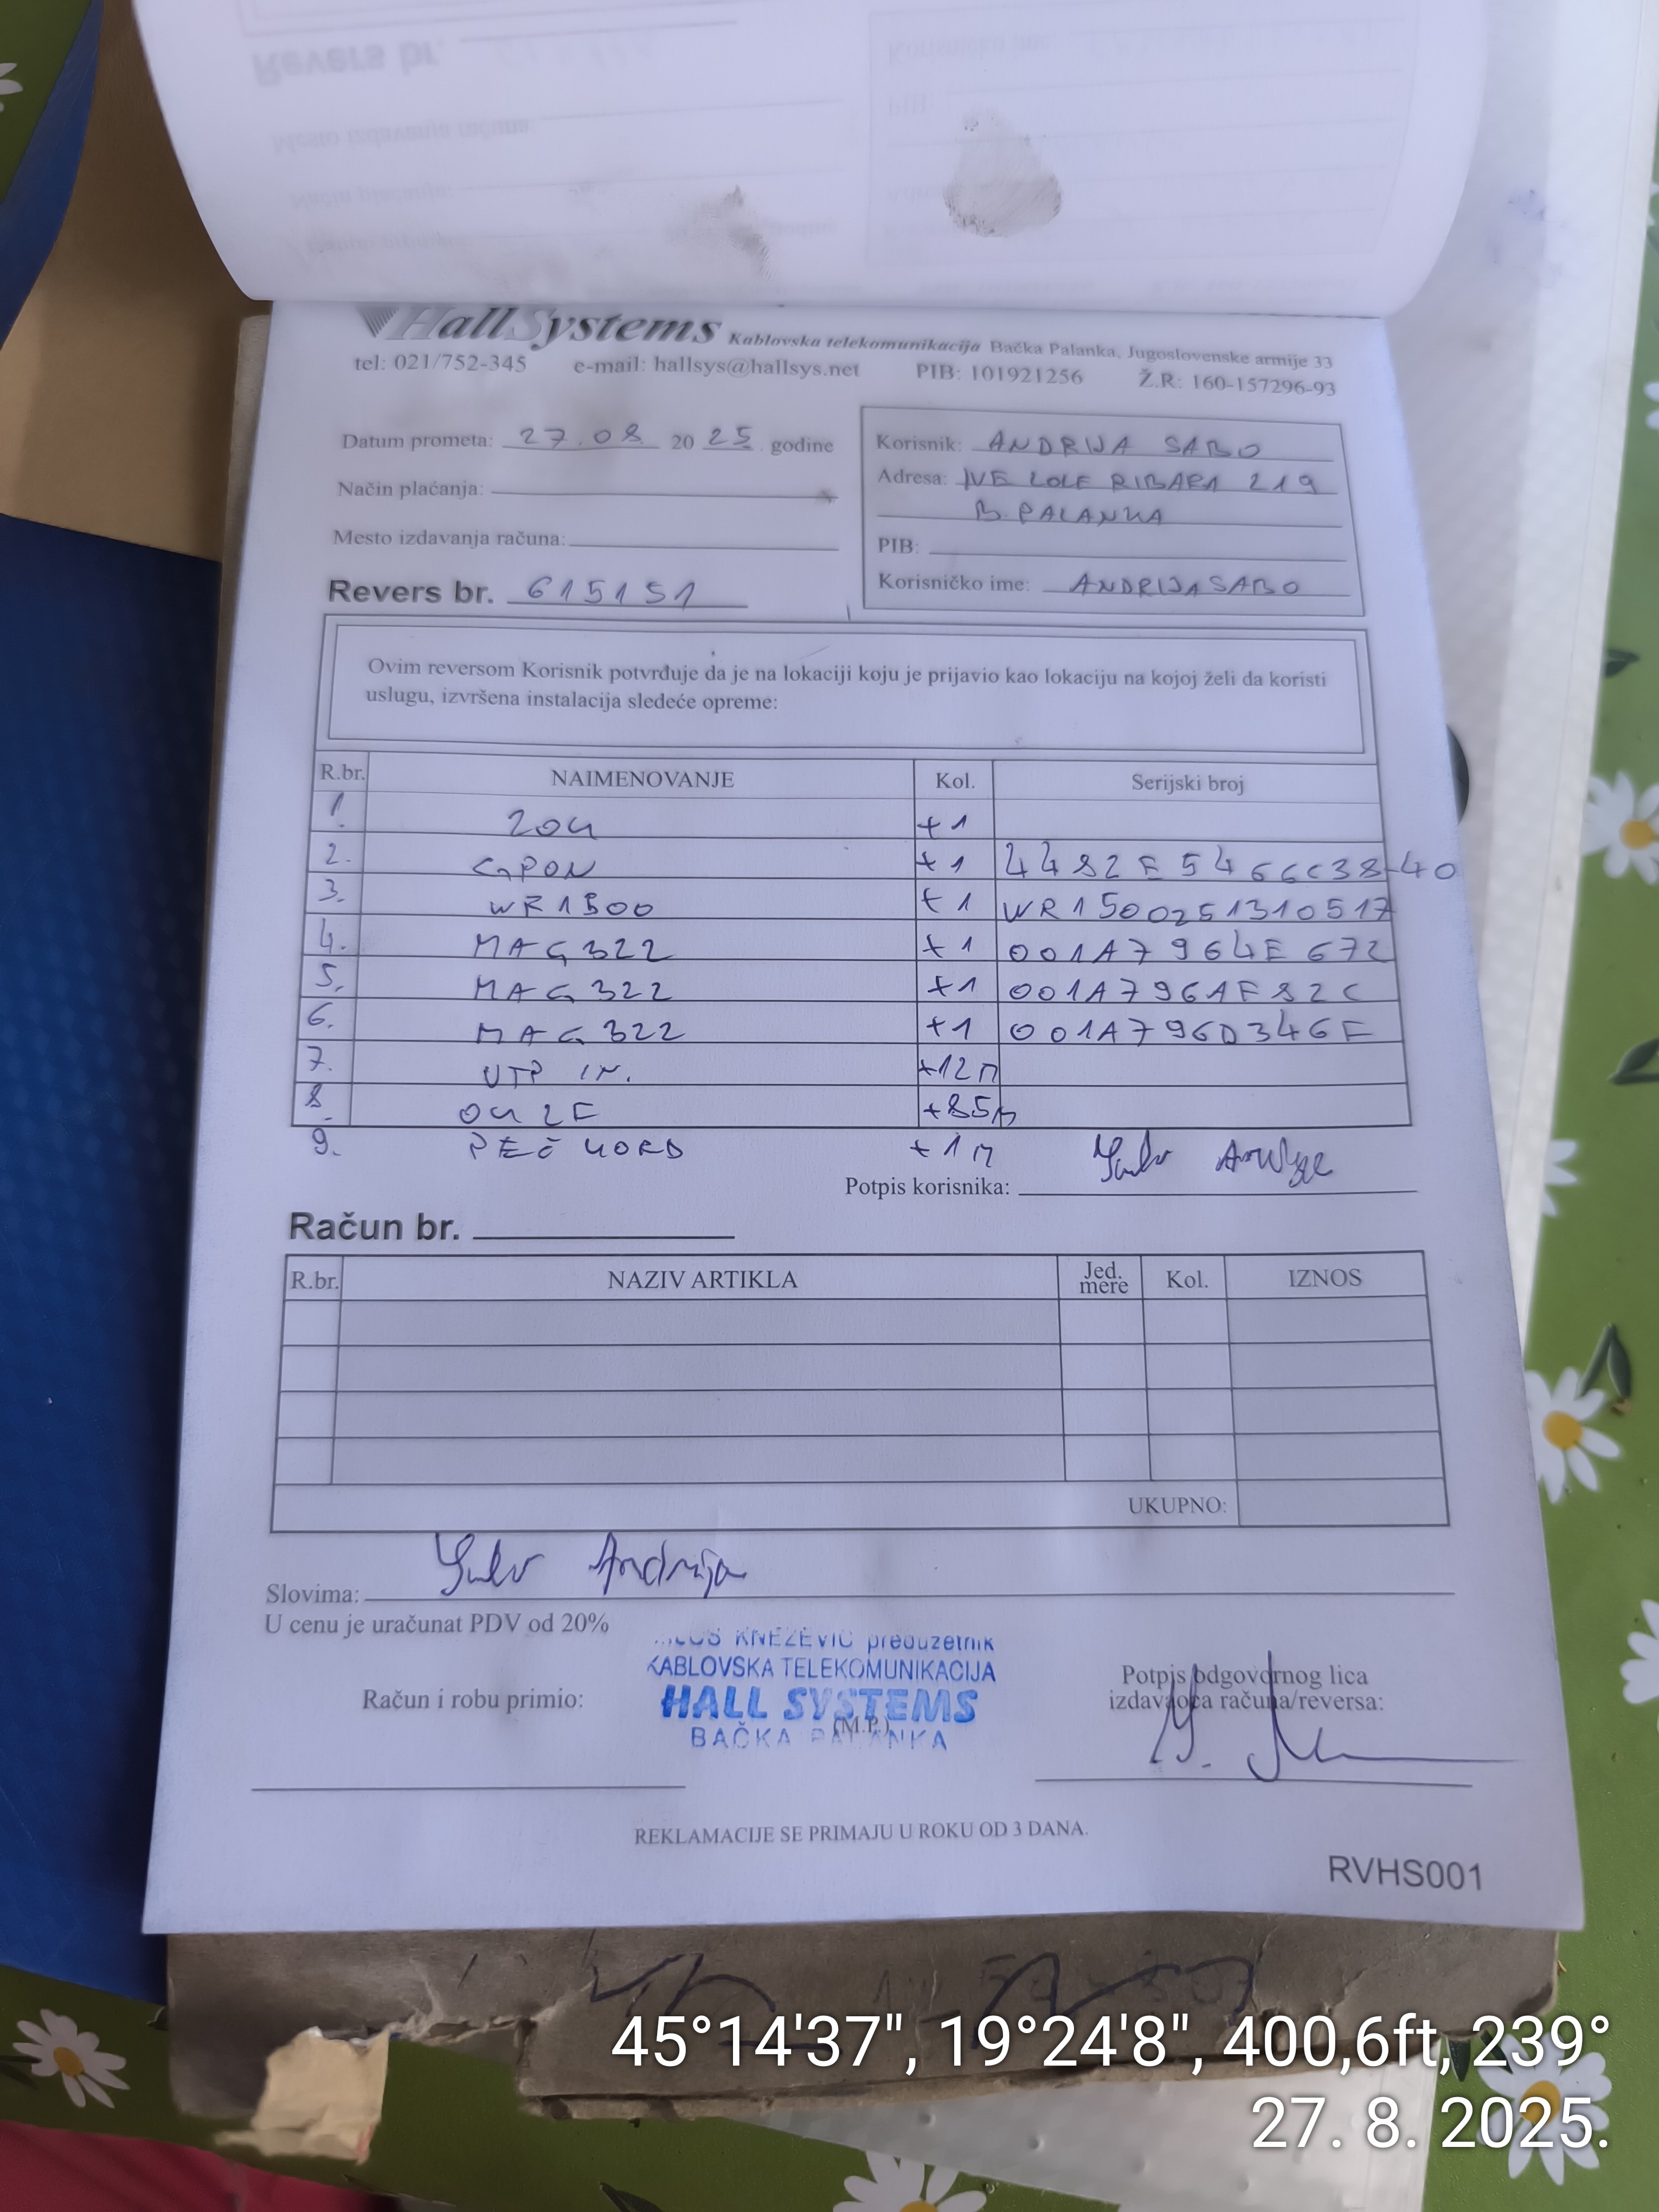 HallSystems Kablovska telekomunikacija Bačka Palanka, Jugoslovenske armije 33
tel: 021/752-345 e-mail: hallsys@hallsys.net PIB: 101921256 Ž.R: 160-157296-93
Datum prometa: 27.08 2025. godine
Način plaćanja:
Mesto izdavanja računa:
Revers br. 615151
Korisnik: ANDRIJA SABO
Adresa: IVE LOLE RIBARA 219
B. PALANKA
PIB:
Korisničko ime: ANDRIJASABO
Ovim reversom Korisnik potvrđuje da je na lokaciji koju je prijavio kao lokaciju na kojoj želi da koristi
uslugu, izvršena instalacija sledeće opreme:
R.br. NAIMENOVANJE Kol. Serijski broj
1. ZOK +1
2. GPON +1
3. WR1500 +1 WR1500251310517
4. MAG322 +1 001A7964E672
5. MAG322 +1 001A7961F82C
6. MAG322 +1 001A796D346F
7. UTP IN. +12m
8. OK 2F +85m
9. +1m
Potpis korisnika:
Račun br.
R.br. NAZIV ARTIKLA Jed. mere Kol. IZNOS
UKUPNO:
Slovima: Andrija
U cenu je uračunat PDV od 20%
KNEŽEVIĆ preduzetnik
KABLOVSKA TELEKOMUNIKACIJA
HALL SYSTEMS
BAČKA PALANKA
(M.P.)
Račun i robu primio:
Potpis odgovornog lica
izdavaoca računa/reversa:
REKLAMACIJE SE PRIMAJU U ROKU OD 3 DANA.
RVHS001
45°14'37", 19°24'8", 400,6ft, 239°
27. 8. 2025.